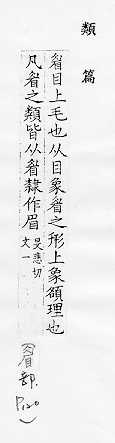 類篇
睂目上毛也从目象睂之形上象頟理也
凡睂之類皆从睂隸作眉
旻悲切
文一
(眉部.
P120)